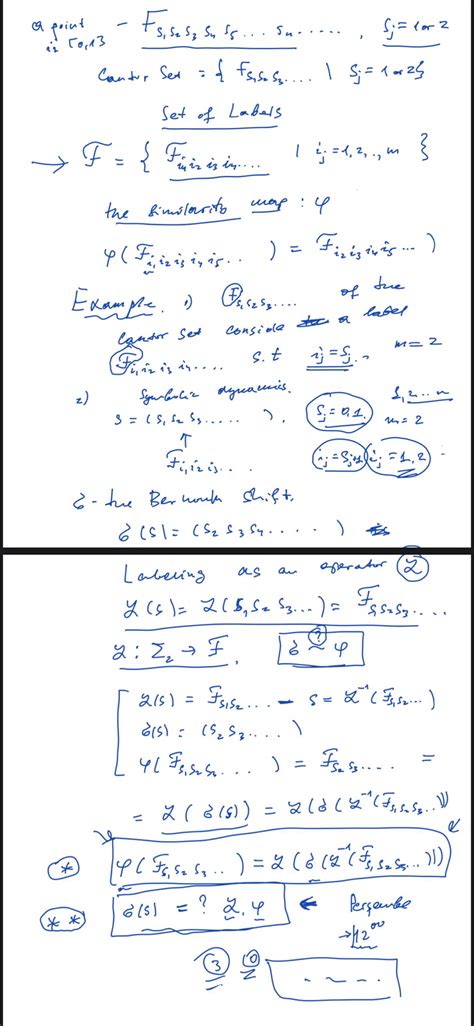 a point - F_{s_1 s_2 s_3 s_4 s_5 ... s_n ......}, s_j = 1 or 2
is [0,1]
Cantor Set = { F_{s_1 s_2 s_3 ....} | s_j = 1 or 2 }
Set of Labels
→ F = { F_{i_1 i_2 i_3 i_4 ....} | i_j = 1, 2, .., m }
the similarity map : φ
φ( F_{i_1 i_2 i_3 i_4 i_5 ..} ) = F_{i_2 i_3 i_4 i_5 ...}
Example. 1) F_{s_1 s_2 s_3 ....} of the
Cantor set conside a label
F_{i_1 i_2 i_3 i_4 ....} s.t i_j = s_j .. m = 2
2) Symbolic dynamics. 1, 2 ... m
s = (s_1 s_2 s_3 .....). s_j = 0,1. m = 2
↑
F_{i_1 i_2 i_3 ...} i_j = s_j+1 i_j = 1, 2
σ - the Bernoulli shift.
σ(s) = (s_2 s_3 s_4 .....)
Labeling as an operator ℒ
ℒ(s) = ℒ(s_1 s_2 s_3 ...) = F_{s_1 s_2 s_3 ....}
ℒ : Σ_2 → F. σ ~ φ ?
ℒ(s) = F_{s_1 s_2 ...} - s = ℒ^{-1}(F_{s_1 s_2 ...})
σ(s) = (s_2 s_3 .....)
φ( F_{s_1 s_2 s_3 ....} ) = F_{s_2 s_3 ....} =
= ℒ(σ(s)) = ℒ(σ(ℒ^{-1}(F_{s_1 s_2 s_3 ..})))
* φ(F_{s_1 s_2 s_3 ..}) = ℒ(σ(ℒ^{-1}(F_{s_1 s_2 s_3 ...})))
** σ(s) = ? ℒ, φ ← Perşembe
→ 12^{00}
3 0 - - - -